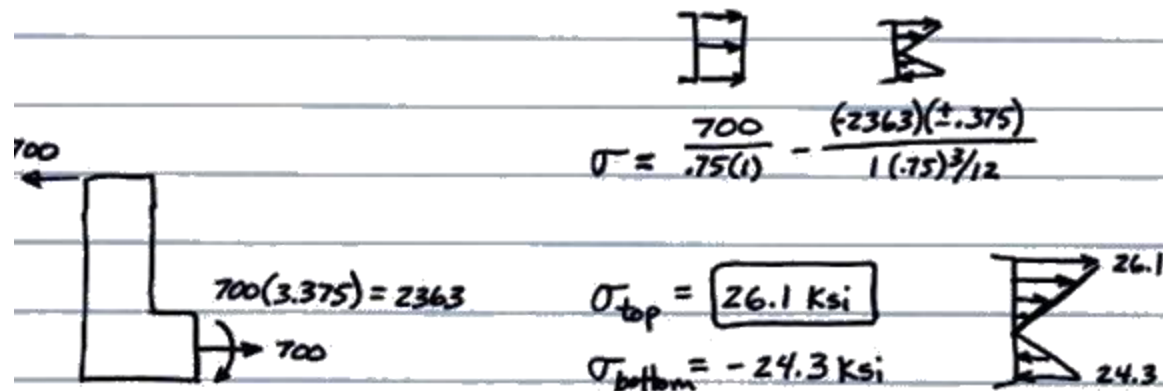 σ = 700/.75(1) - (-2363)(±.375)/1(.75)³/12
700
700(3.375) = 2363
700
σtop = 26.1 ksi
26.1
σbottom = -24.3 ksi
24.3